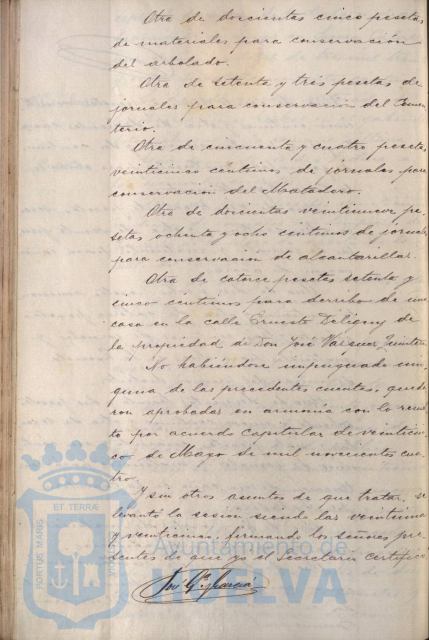 Otra de doscientas cinco pesetas
de materiales para conservación
del arbolado.
Otra de setenta y tres pesetas de
jornales para conservación del Cemen-
terio.
Otra de cincuenta y cuatro pesetas
veinticinco centimos de jornales para
conservación del Matadero.
Otra de doscientas veintinueve pe-
setas ochenta y ocho centimos de jornales
para conservación de alcantarillas.
Otra de catorce pesetas setenta y
cinco centimos para derribo de una
casa en la calle Ernesto Deligny de
la propiedad de Don José Vazquez Quintero
No habiendose impugnado nin-
guna de las precedentes cuentas, queda-
ron aprobadas en armonía con lo resuel-
to por acuerdo capitular de veinticin-
co de Mayo de mil novecientos cua-
tro.
Y sin otros asuntos de que tratar, se
levantó la sesión siendo las veintiuna
y veinticinco, firmando los señores pre-
sentes de que yo el Secretario certifico
José Gª García
PORTUS MARIS
ET TERRÆ
Ayuntamiento de
HUELVA